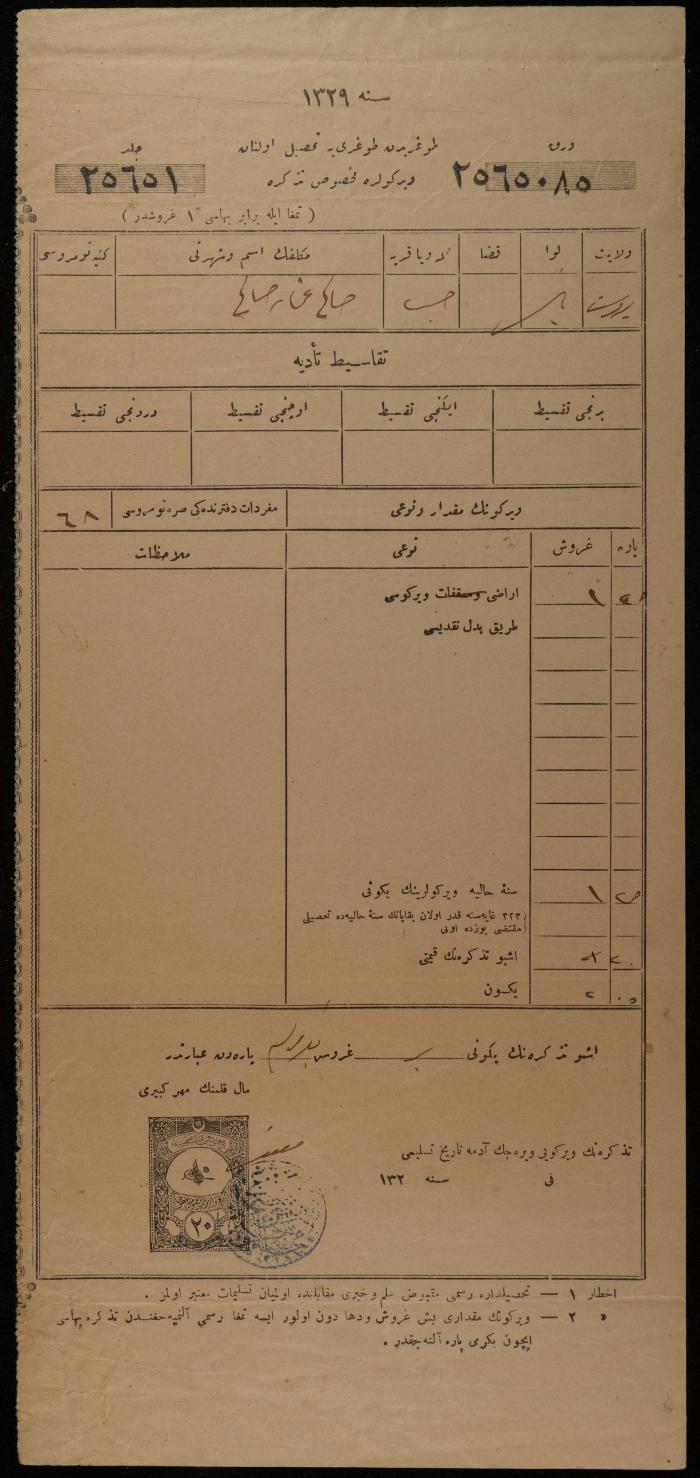 سنه ١٣٢٩
ورق طوغریدن طوغری‌یه تحصیل اولنان جلد
٢٥٦٥٠٨٥ ویرکولره مخصوص تذکره ٢٥٦٥١
( تمغا ایله برابر بهاسی ١ غروشدر )
ولایت لوا قضا محله ویا قریه مکلفك اسم وشهرتی کنیه نومروسی
صالح صالح
تقاسیط تأدیه
برنجی تقسیط ایکنجی تقسیط اوچنجی تقسیط دردنجی تقسیط
ویرکونك مقدار ونوعی مفردات دفترنده‌کی صره نومروسی ٦٨
پاره غروش نوعی ملاحظات
اراضی ومسقفات ویرکوسی ١
طریق بدل نقدیسی
سنهٔ حالیه ویرکولرینك یکونی ١
٣٢٣ غایه‌سنه قدر اولان بقایانك سنهٔ حالیه‌ده تحصیلی
مقتضی یوزده اونی
اشبو تذکره‌نك قیمتی ٢٠
یکون ٢
اشبو تذکره‌نك یکونی غروش پاره‌دن عبارتدر
مال قلمنك مهر کبیری
تذکره‌نك ویرکویی ویره‌جك آدمه تاریخ تسلیمی
فی سنه ١٣٢
٢٠
اخطار ١ — تحصیلداره رسمی مقبوض علم وخبری مقابلنده اولمیان تسلیمات معتبر اولمز .
» ٢ — ویرکونك مقداری بش غروش ودها دون اولور ایسه تمغا رسمی آلنمیه‌جغندن تذکره بهاسی
ایچون یکرمی پاره آلنه‌جقدر .